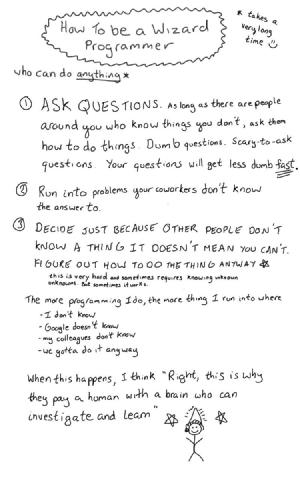 How To be a Wizard
Programmer
* takes a
very long
time
who can do anything *
① ASK QUESTIONS. As long as there are people
around you who know things you don't, ask them
how to do things. Dumb questions. Scary-to-ask
questions. Your questions will get less dumb fast.
② Run into problems your coworkers don't know
the answer to.
③ DECIDE JUST BECAUSE OTHER PEOPLE DON'T
KNOW A THING IT DOESN'T MEAN YOU CAN'T.
FIGURE OUT HOW TO DO THE THING ANYWAY ☆
this is very hard and sometimes requires knowing unknown
unknowns. But sometimes it works.
The more programming I do, the more thing I run into where
- I don't know
- Google doesn't know
- my colleagues don't know
- we gotta do it anyway
When this happens, I think "Right, this is why
they pay a human with a brain who can
investigate and learn"